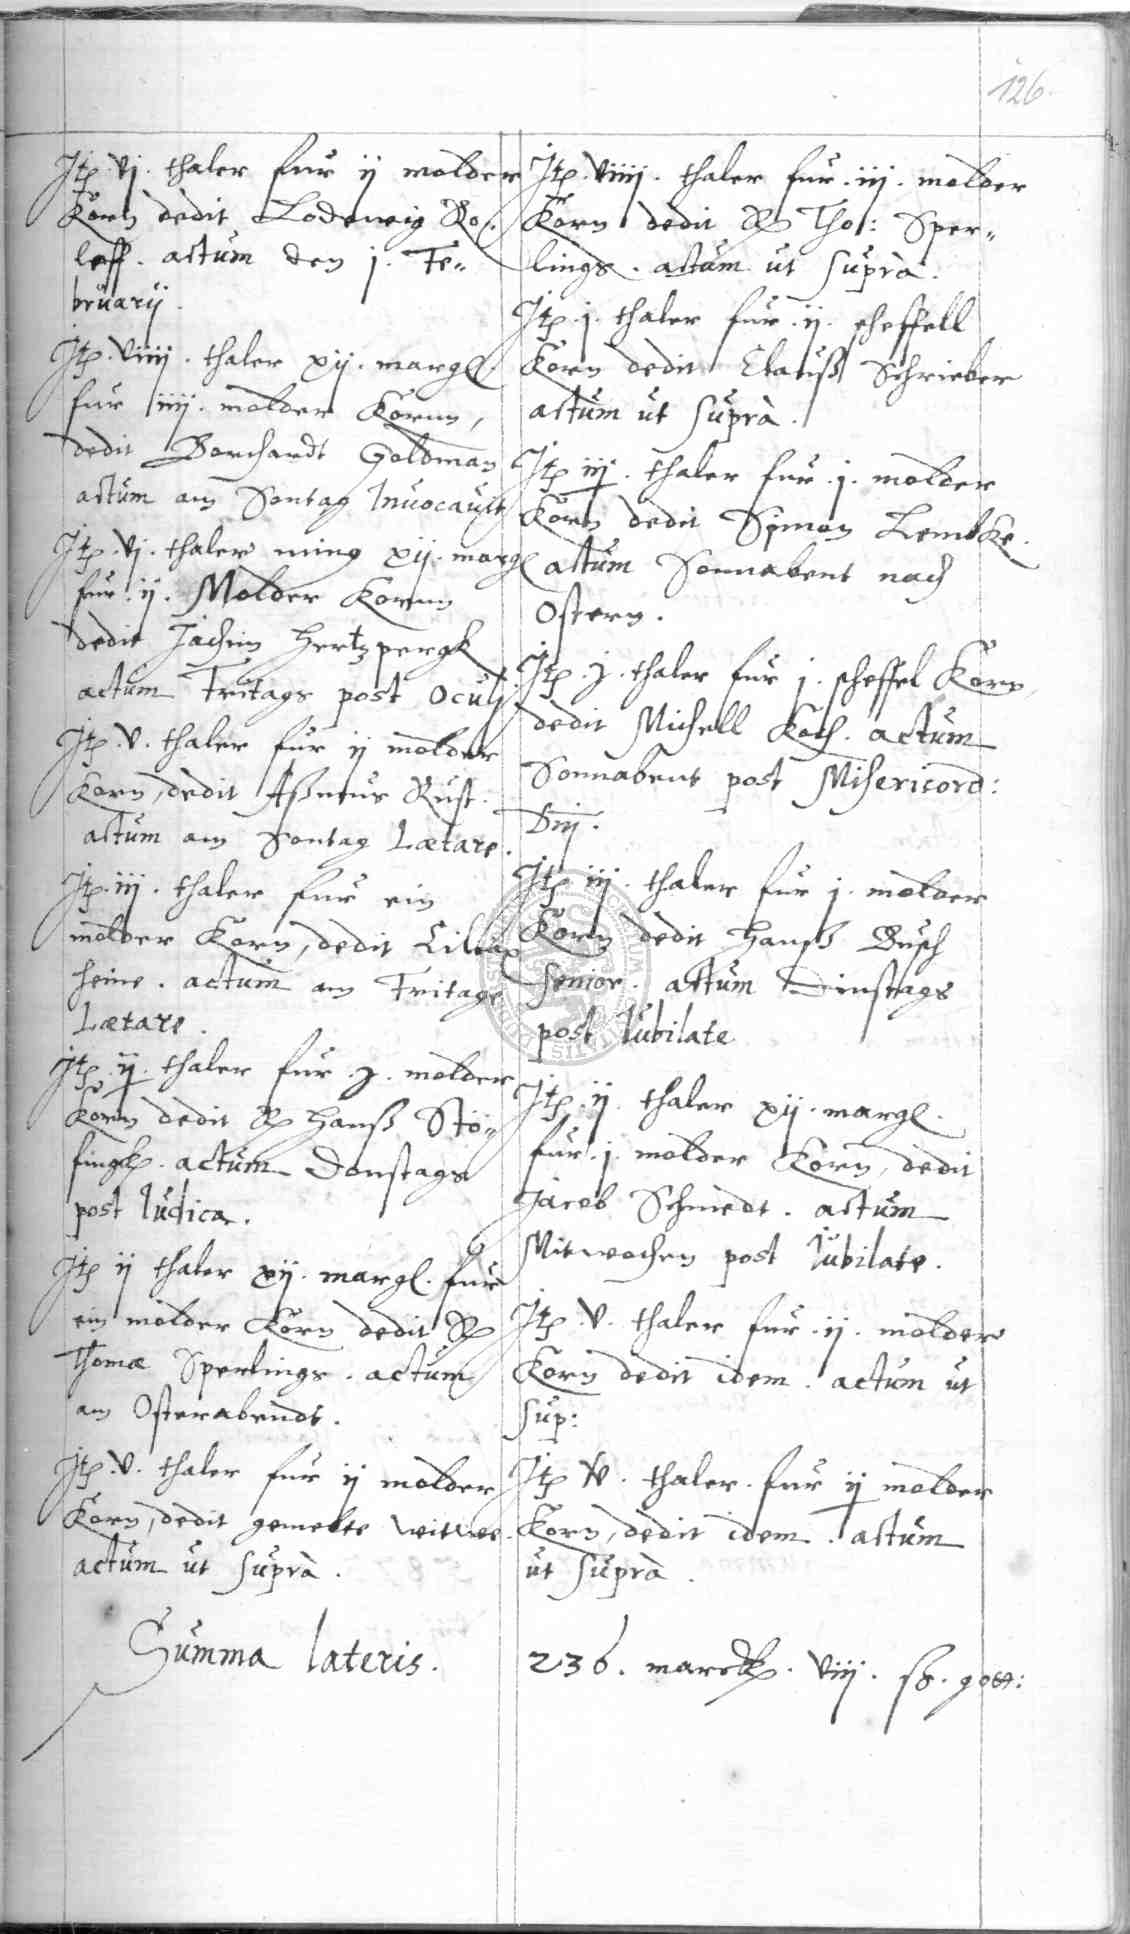 126.
Itẽ vj. thaler fur ij molder
Korn dedit Lodewig Ro-
leff. actum den j. Fe-
bruarij.
Itẽ viiij. thaler xij. margl.
fur iiij. molder Kornn,
dedit Borchardt Goldman
actum am Sontag Inuocauit
Itẽ vj. thaler ming xij. margl
fur ij. Molder Kornn
dedit Jachim Hertzpergk
actum Fritags post Oculj
Itẽ v. thaler fur ij molder
Korn, dedit Aßmus Rust.
actum am Sontag Lætare.
Itẽ iij. thaler fur ein
molder Korn, dedit
Heine. actum am Fritage
Lætare.
Itẽ ij. thaler fur j. molder
Korn dedit Hanß Stö-
fingk. actum Donstags
post Iudica.
Itẽ ij thaler xij. margl. fur
ein molder Korn dedit
Thomæ Sperlings. actum
am Osterabendt.
Itẽ v. thaler fur ij molder
Korn, dedit gemelte witwe.
actum ut suprà.
Itẽ viiij. thaler fur iij. molder
Korn dedit Tho: Sper-
lings. actum ut suprà.
Itẽ j. thaler fur ij. scheffell
Korn dedit Clauß Schrieber
actum ut suprà.
Itẽ iij. thaler fur j. molder
Korn dedit Simon Lembke.
actum Sonnabent nach
Ostern.
Itẽ j. thaler fur j. scheffel Korn,
dedit Michell Koch. actum
Sonnabent post Misericord:
Dnj.
Itẽ iij. thaler fur j. molder
Korn dedit Hanß Busch
senior. actum Dinstags
post Iubilate
Itẽ ij. thaler xij. margl.
fur j. molder Korn, dedit
Jacob Schmedt. actum
Mitwochen post Iubilate.
Itẽ v. thaler fur ij. molder
Korn dedit idem. actum ut
sup:
Itẽ v. thaler. fur ij molder
Korn, dedit idem. actum
ut suprà.
Summa lateris. 236. marck. viij. ß.